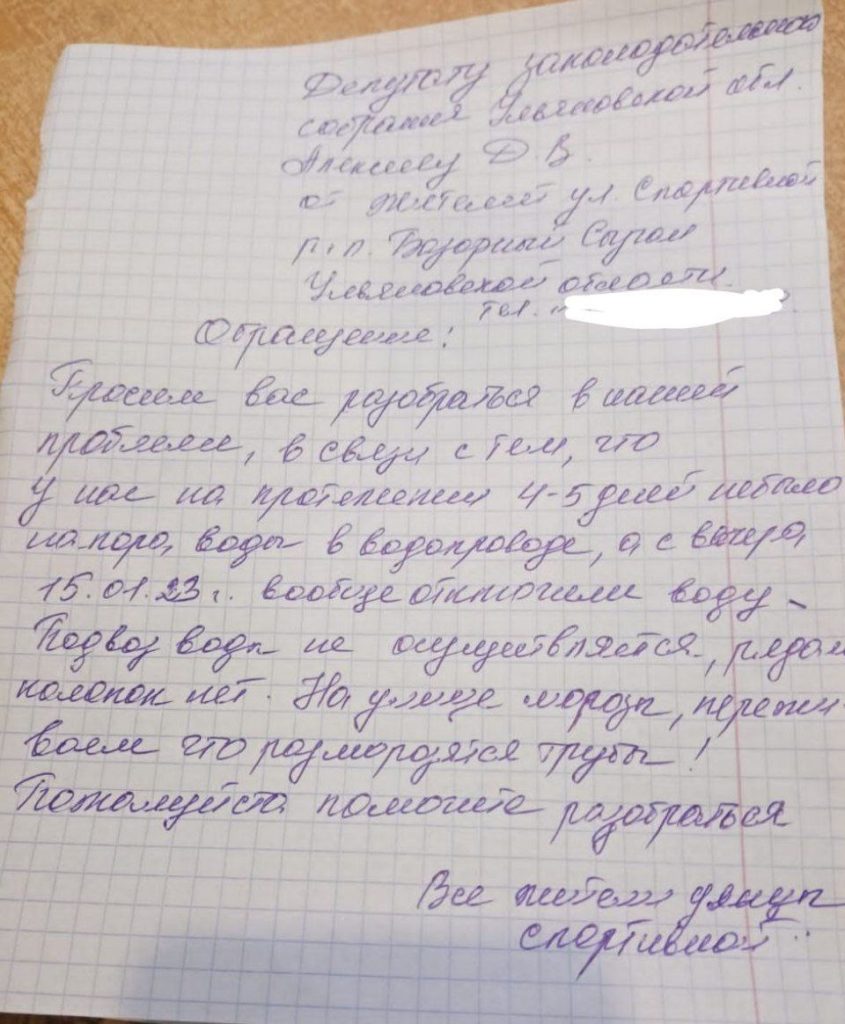 Депутату законодательного
собрания Ульяновской обл.
Алексееву Д. В.
от жителей ул. Спортивной
р.п. Базарный Сызган
Ульяновской области.
тел.
Обращение:
Просим вас разобраться в нашей
проблеме, в связи с тем, что
у нас на протежении 4-5 дней небыло
напора воды в водопроводе, а с вечера
15.01.23 г. вообще отключили воду
Подвоз воды не осуществляется, рядом
колонок нет. На улице морозы, пережи-
ваем что разморозятся трубы!
Пожалуйста помогите разобраться
Все жители улицы
спортивной